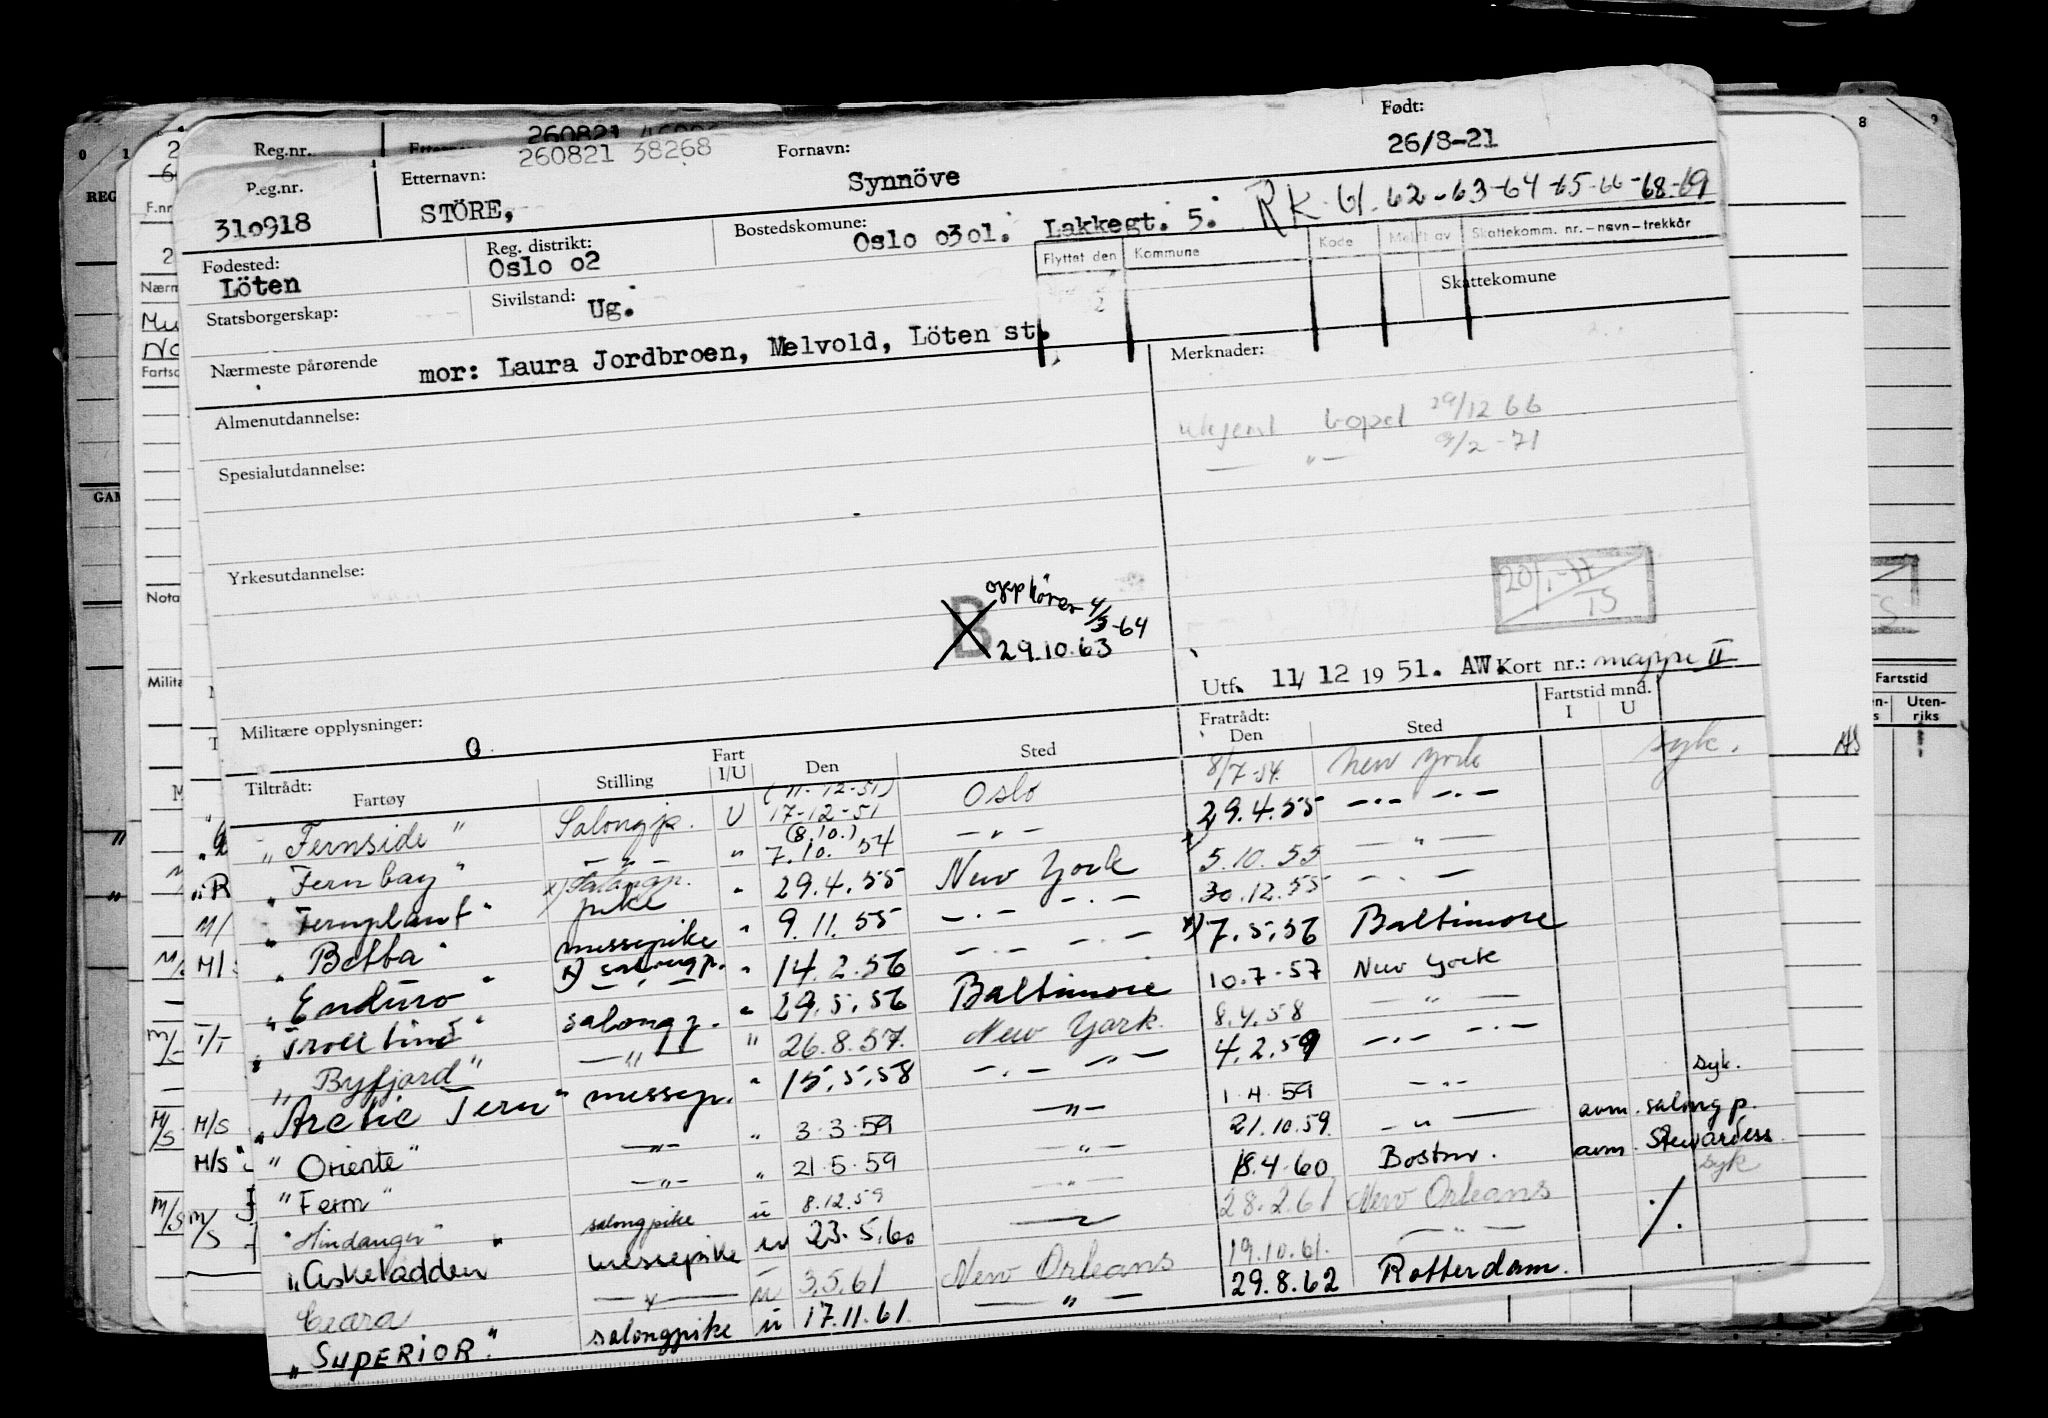 Født:
26/8-21
Reg.nr.
260821 38268
Fornavn:
Reg.nr.
Etternavn:
Synnöve
310918
STÖRE,
RK 61. 62-63-64-65-66-68-69
Bostedskomune:
Oslo 0301. Lakkegt. 5.
Fødested:
Löten
Reg. distrikt:
Oslo 02
Flyttet den Kommune Kode Meldt av Skattekomm. nr.-navn-trekkår
Statsborgerskap:
Sivilstand:
Ug.
Skattekomune
Nærmeste pårørende mor: Laura Jordbroen, Melvold, Löten st.
Merknader:
Almenutdannelse:
ukjent bopel 29/12 66
— " — 9/2-71
Spesialutdannelse:
Yrkesutdannelse:
B opphører 4/3-64
29.10.63
20/1-77
TS
Utf. 11/12 1951. AW. Kort nr.: mappe II
Militære opplysninger:
0
Tiltrådt: Fartøy Stilling Fart I/U Den Sted Fratrådt: Den Sted Fartstid mnd. I U
"Fernside" Salongp. U (11-12-51) 17-12-51 Oslo 8/7-54 New York syk.
"Fernbay" — " — " (8.10.) 7.10.54 — " — 29.4.55 — " — " —
"Fernplant" x) Salongp. pike " 29.4.55 New York x) 5.10.55 — " —
"Betta" messepike " 9.11.55 — " — " — 30.12.55 — " —
"Enduro" x) salongp. " 14.2.56 — " — " — x) 7.5.56 Baltimore
"Trolltind" salongp. " 29.5.56 Baltimore 10.7.57 New York
"Byfjord" — " — " 26.8.57. New York. 8.4.58 — " —
M/S "Arctic Tern" messep. " 15.5.58 — " — " — 4.2.59 — " —
M/S "Oriente" — " — " 3.3.59 — " — 1.4.59 — " — syk.
"Fern" — " — " 21.5.59 — " — 21.10.59. — " — avm. salongp.
"Hindanger" salongpike u 8.12.59 — " — 18.4.60 Boston. avm. Stewardess
"Askeladden" messepike u 23.5.60 — " — 28.2.61 New Orleans syk
Ceara — " — u 3.5.61 New Orleans 19.10.61. — " —
"SUPERIOR." salongpike u 17.11.61. — " — 29.8.62 Rotterdam.
Fartstid
Utenriks